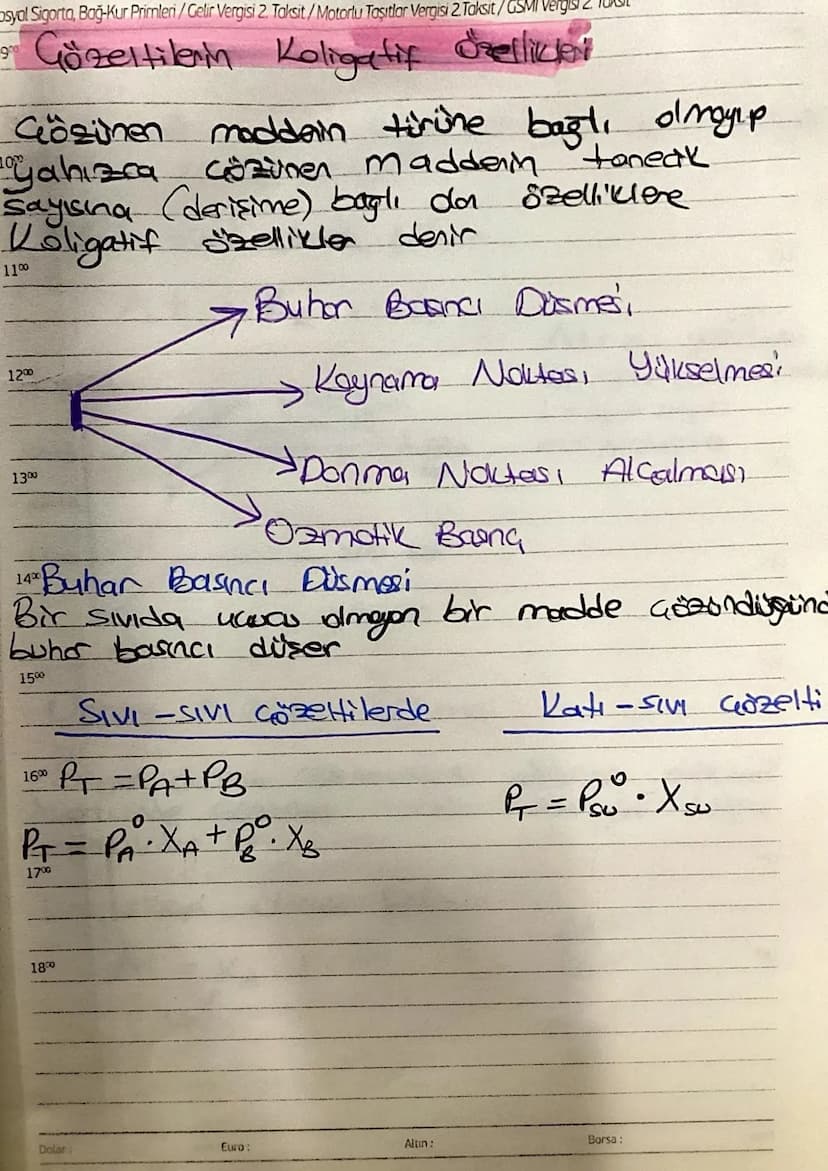 osyal Sigorta, Bağ-Kur Primleri / Gelir Vergisi 2. Taksit / Motorlu Taşıtlar Vergisi 2.Taksit / GSMİ Vergisi 2. Taksit
9⁰⁰ Çözeltilerin Koligatif Özellikleri
Çözünen maddenin türüne bağlı olmayıp
10⁰⁰ yalnızca çözünen maddenin tanecik
sayısına (derişime) bağlı olan özelliklere
Koligatif özellikler denir
11⁰⁰
Buhar Basıncı Düşmesi
12⁰⁰
Kaynama Noktası Yükselmesi
13⁰⁰
Donma Noktası Alçalması
Ozmotik Basınç
14⁰⁰ Buhar Basıncı Düşmesi
Bir sıvıda uçucu olmayan bir madde çözündüğünd
buhar basıncı düşer
15⁰⁰
Sıvı-sıvı çözeltilerde
Katı-sıvı çözelti
16⁰⁰ P_T = P_A + P_B
P_T = P_su⁰ · X_su
P_T = P_A⁰ · X_A + P_B⁰ · X_B
17⁰⁰
18⁰⁰
Dolar : Euro : Altın : Borsa :